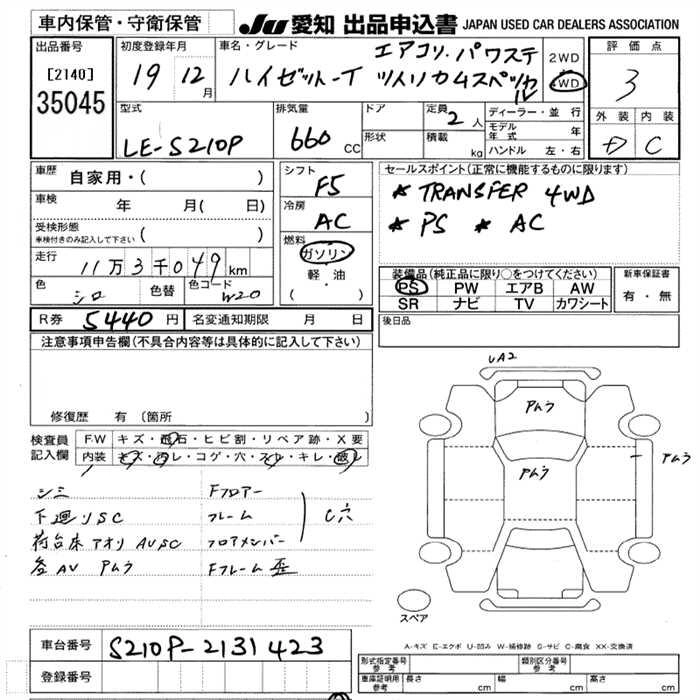 車内保管・守衛保管
JU 愛知 出品申込書 JAPAN USED CAR DEALERS ASSOCIATION
出品番号
[2140]
35045
初度登録年月
19 12月
車名・グレード
エアコン.パワステ
ハイゼットーT
2WD
4WD
評価点
3
外装 内装
D C
型式
LE-S210P
排気量
660 CC
ドア
形状
定員 2人
積載 kg
ディーラー・並行
モデル年式 年
ハンドル 左・右
車歴
自家用・( )
車検 年 月( 日)
受検形態
※検付きのみ記入して下さい ( )
走行 11万3千049km
色 シロ 色替 色コード W20
シフト
F5
冷房
AC
燃料
ガソリン
軽・油
( ・ )
セールスポイント(正常に機能するものに限ります)
* TRANSFER 4WD
* PS * AC
装備品(純正品に限り○をつけてください)
PS PW エアB AW
SR ナビ TV カワシート
新車保証書
有・無
R券 5440円 名変通知期限 月 日
後日品
注意事項申告欄(不具合内容等は具体的に記入して下さい)
修復歴 有 (箇所
検査員記入欄
F.W キズ・飛石・ヒビ割・リペア跡・X要
内装 キズ・汚レ・コゲ・穴・スレ・キレ・破レ
シミ Fフロアー
下廻りSC フレーム C穴
荷台床アオリ AUSC フロアメンバー
各AU アムラ Fフレーム歪
UA2
アムラ
アムラ
アムラ
スペア
A-キズ E-エクボ U-凹み W-補修跡 S-サビ C-腐食 XX-交換済
車台番号 S210P-2131423
登録番号
形式指定番号 参考
類別区分番号 参考
車庫証明用 参考 長さ cm 幅 cm 高さ cm